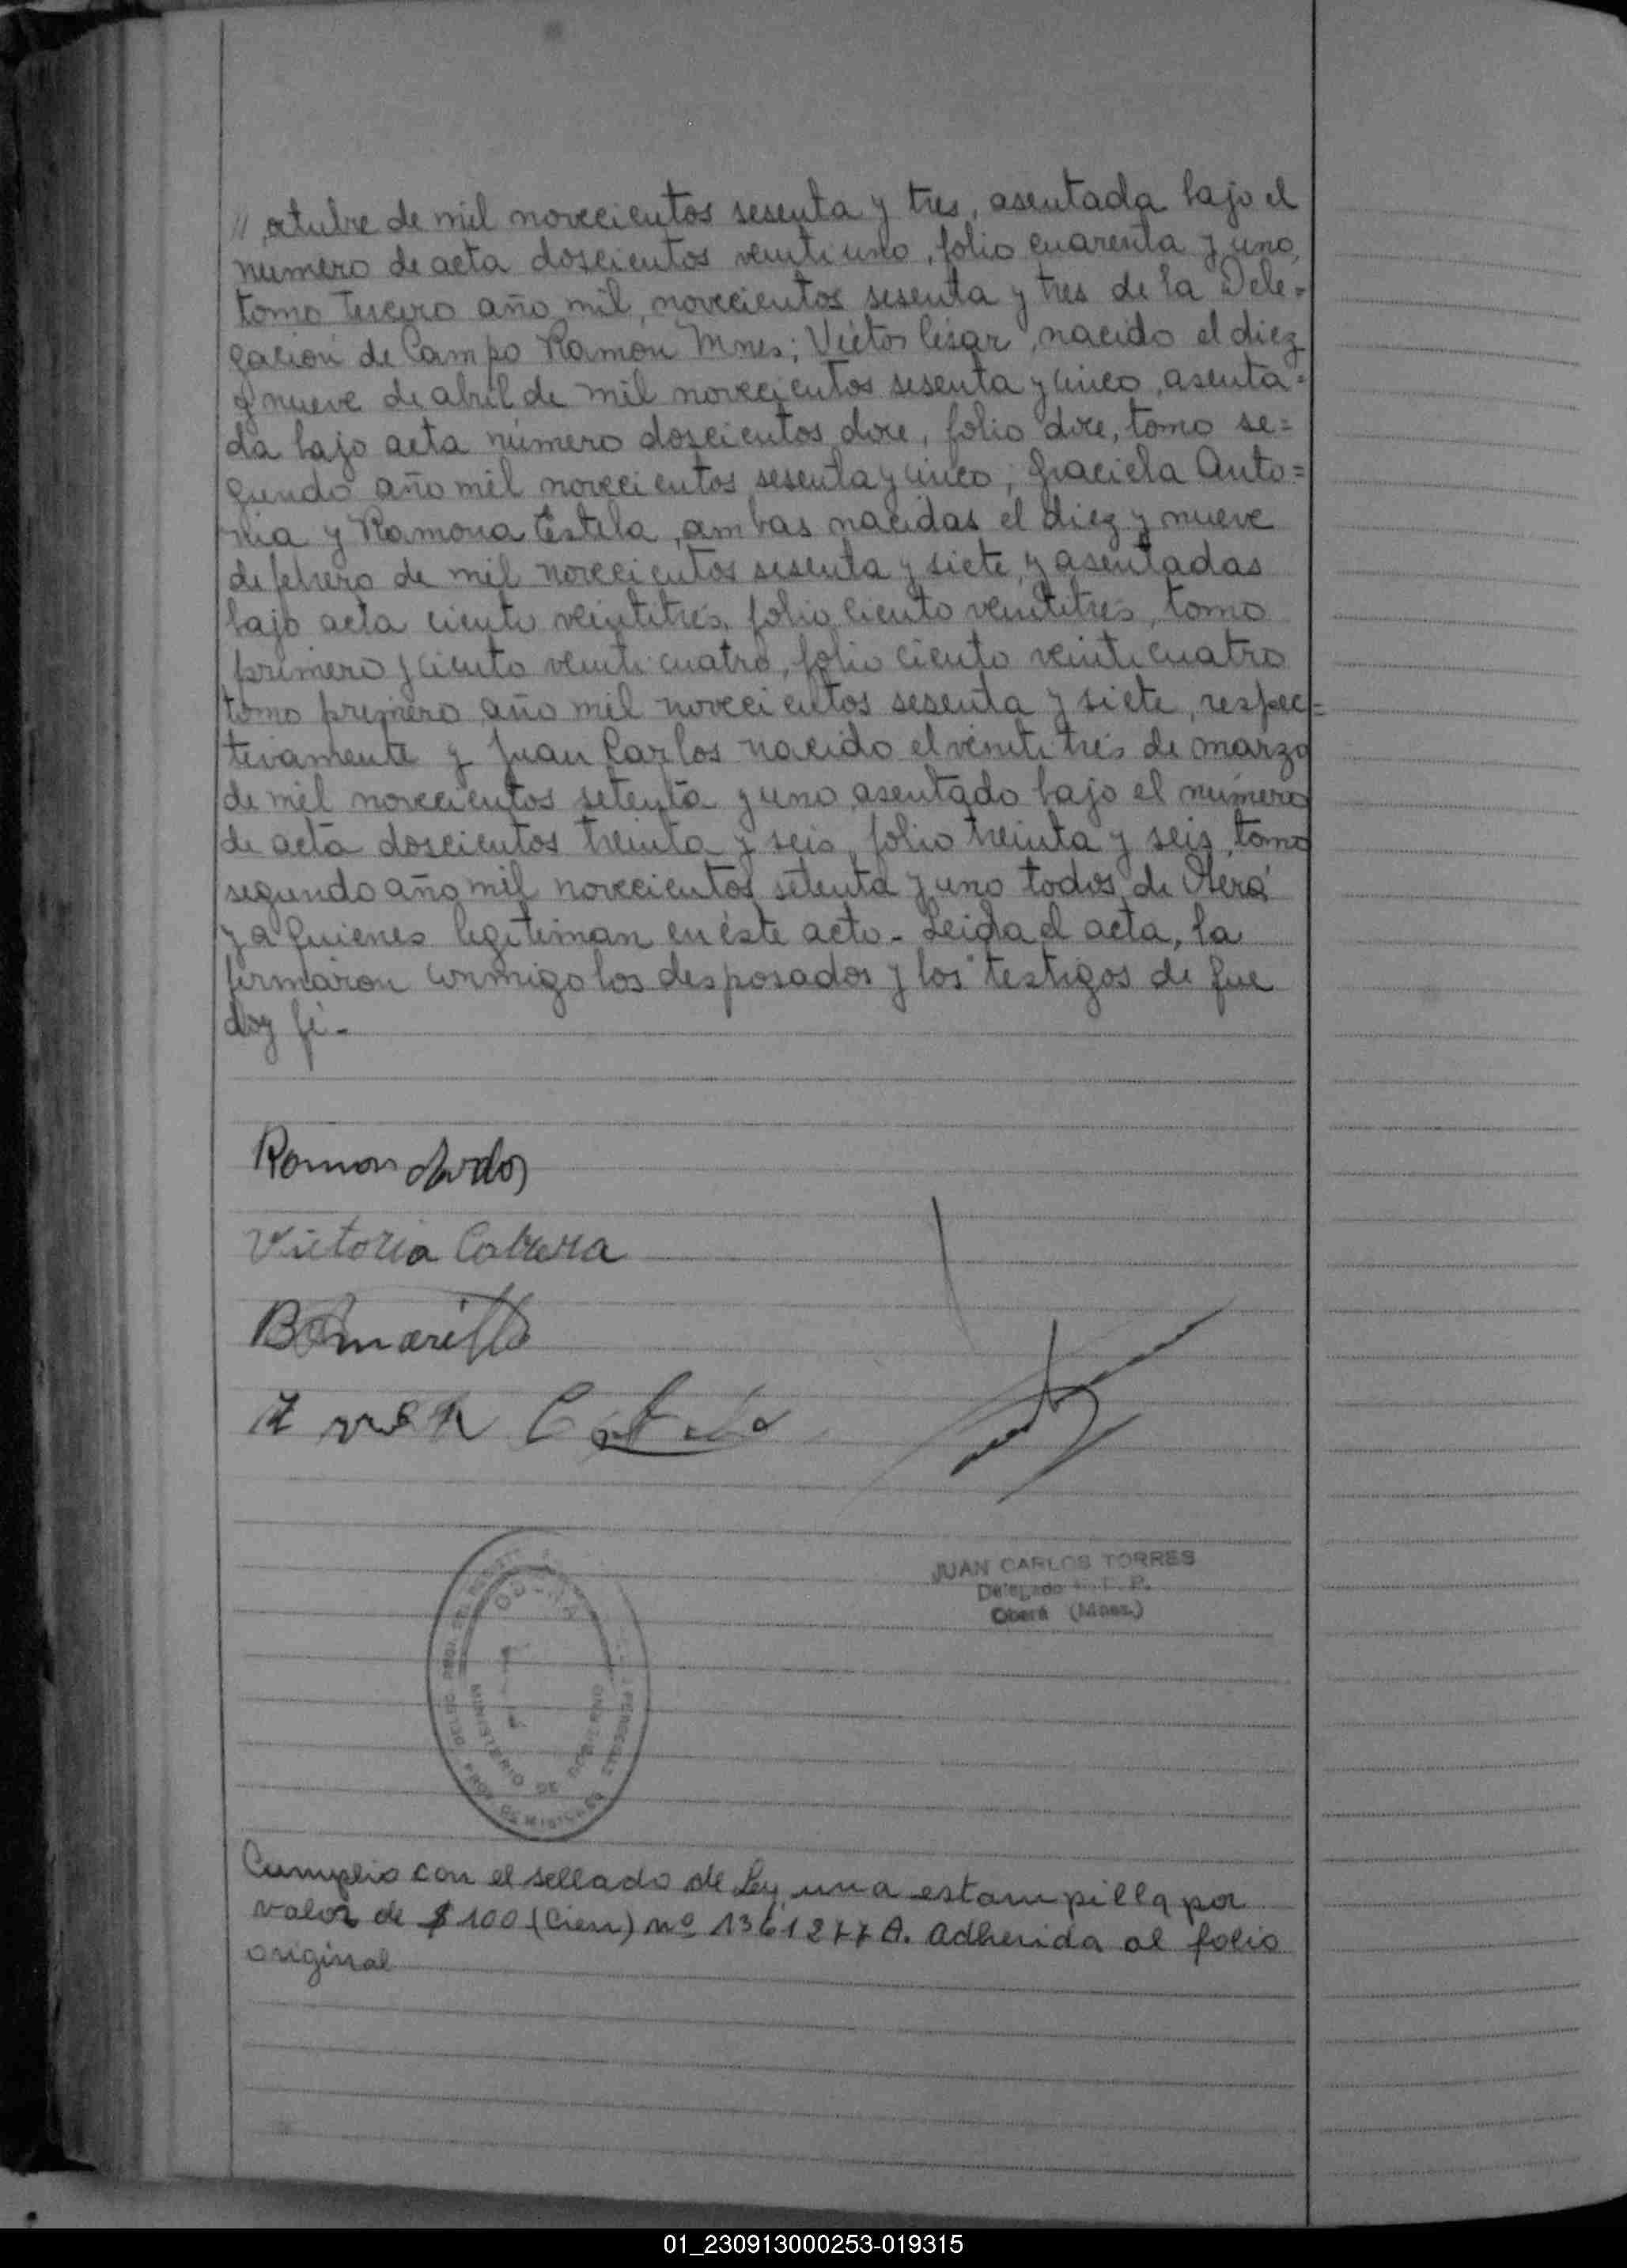 // octubre de mil novecientos sesenta y tres, asentada bajo el
numero de acta doscientos veintiuno, folio cuarenta y uno,
tomo tercero año mil novecientos sesenta y tres de la Dele=
gación de Campo Ramon Mnes; Victor César, nacido el diez
y nueve de abril de mil novecientos sesenta y cinco, asenta=
da bajo acta número doscientos doce, folio doce, tomo se=
gundo año mil novecientos sesenta y cinco; Graciela Anto=
nia y Ramona Estela, ambas nacidas el diez y nueve
de febrero de mil novecientos sesenta y siete, y asentadas
bajo acta ciento veintitrés, folio ciento veintitrés, tomo
primero y ciento veinticuatro, folio ciento veinticuatro
tomo primero año mil novecientos sesenta y siete, respec=
tivamente y Juan Carlos nacido el veintitrés de marzo
de mil novecientos setenta y uno asentado bajo el número
de acta doscientos treinta y seis, folio treinta y seis, tomo
segundo año mil novecientos setenta y uno todos de Oberá
y a quienes legitiman en éste acto - Leida el acta, la
firmaron conmigo los desposados y los testigos de que
doy fé -
Ramon
Victoria Cabrera
JUAN CARLOS TORRES
Delegado R. P.
Oberá (Mnes.)
MINISTERIO DE GOBIERNO
PROV. DE MISIONES
Cumplio con el sellado de Ley una estampilla por
valor de $ 100 (Cien) nº 1361277 A. adherida al folio
original
01_230913000253-019315